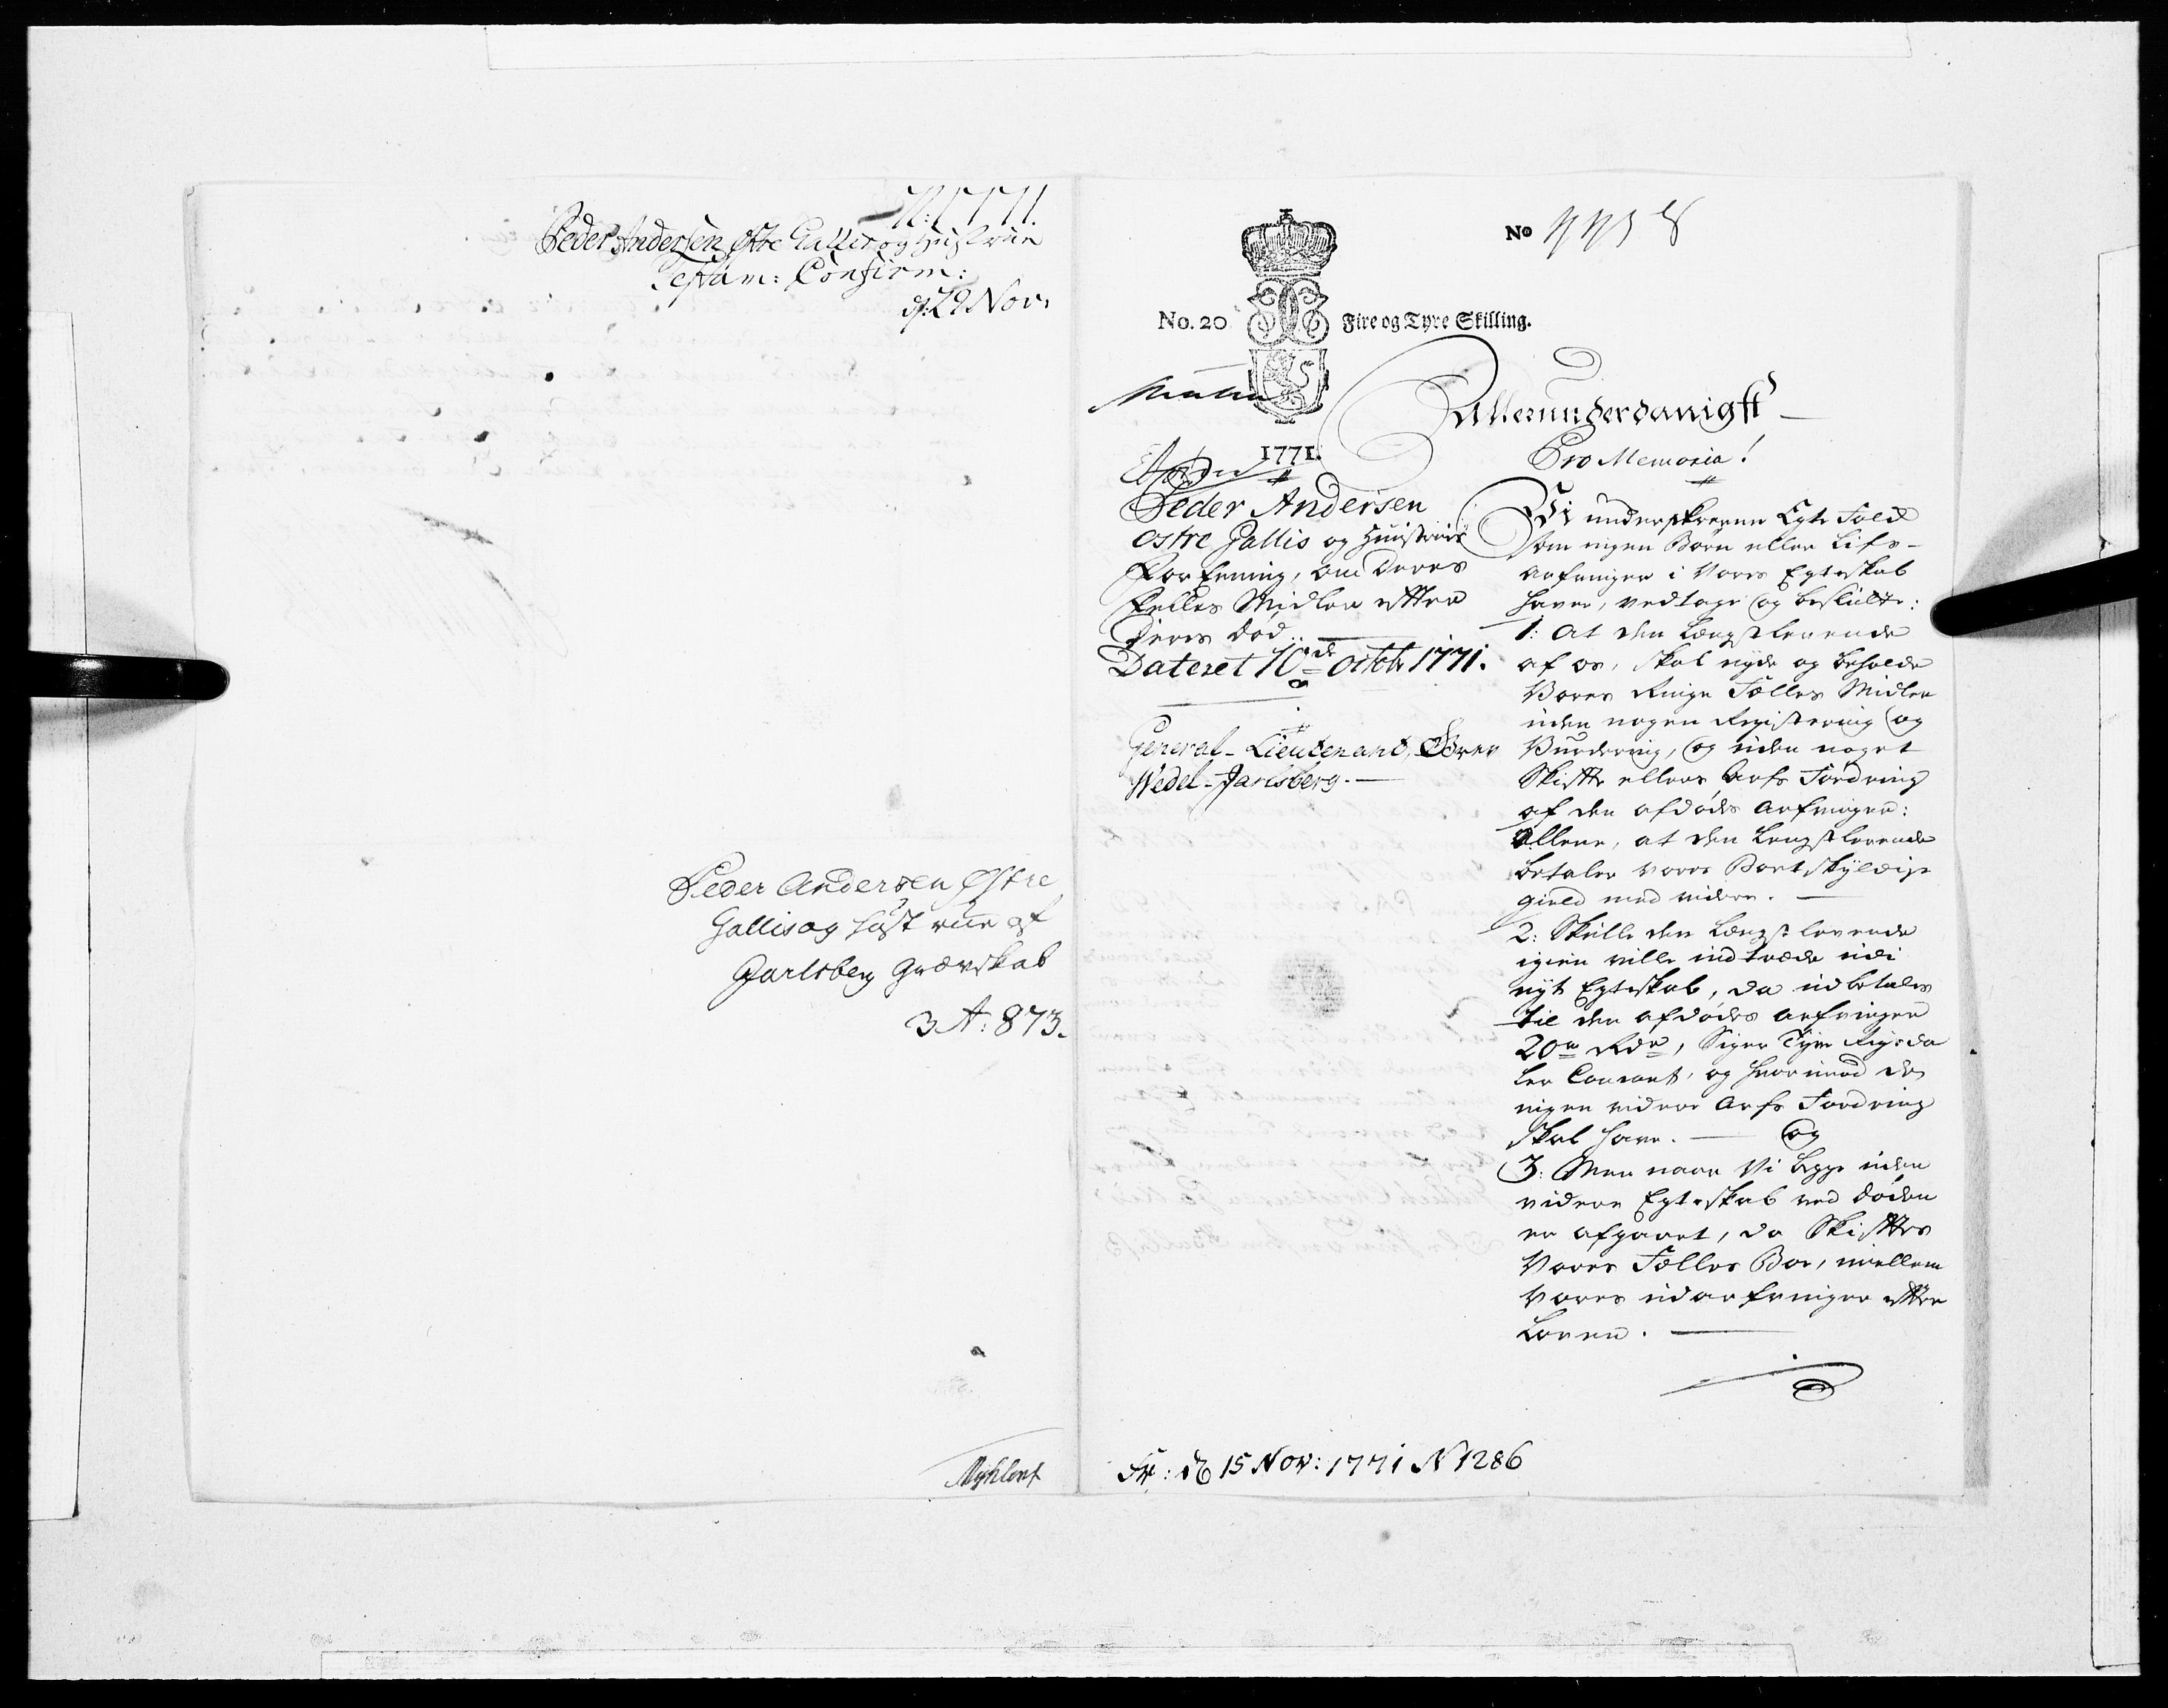 Peder Andersen Østre Gallis og Hustrue
Testam: Confirm:
d: 29 Nov:
Peder Andersen Østre
Gallis og Hustrue af
Jarlsberg Grævskab
3 A: 873.
No
No. 20
Fire og Tyve Skilling.
1771.
Allerunderdanigst
Pro Memoria!
Peder Andersen
østre Gallis og Hustrues
Forening, om Deres
Felles Midler efter
Deres død.
Dateret 10de octobr 1771.
General-Lieutenant, Grev
Wedel-Jarlsberg.
Vi underskrevne Egte Folk
som ingen Børn eller Lifs-
Arfvinger i Vores Egteskab
haver, vedtage og beslutte:
1: At den Længstlevende
af os, skal nyde og beholde
Vores Ringe Fælles Midler
uden nogen Registering og
Vurdering, og uden noget
Skifte ellers Arfs Fordring
af den afdødes Arfvinger:
Allene, at den Længstlevende
betaler vores Bortskyldige
gield med videre.
2: Skulle den Længstlevende
igien ville indtræde udi
nyt Egteskab, da udbetales
til den afdødes Arfvinger
20ve Rdr, Siger Tyve Rigsda
ler Courant, og hvorimod de
ingen videre Arfs Fordring
skal have. og
3: Men naar Vi begge uden
videre Egteskab ved døden
er afgaaet, da Skiftes
Vores Fælles Boe, imellem
Vores udarfvinger efter
Loven.
15 Nov: 1771 N 1286